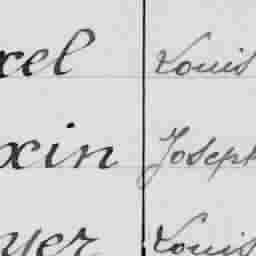 xel Louis
xin Joseph
yer Louis